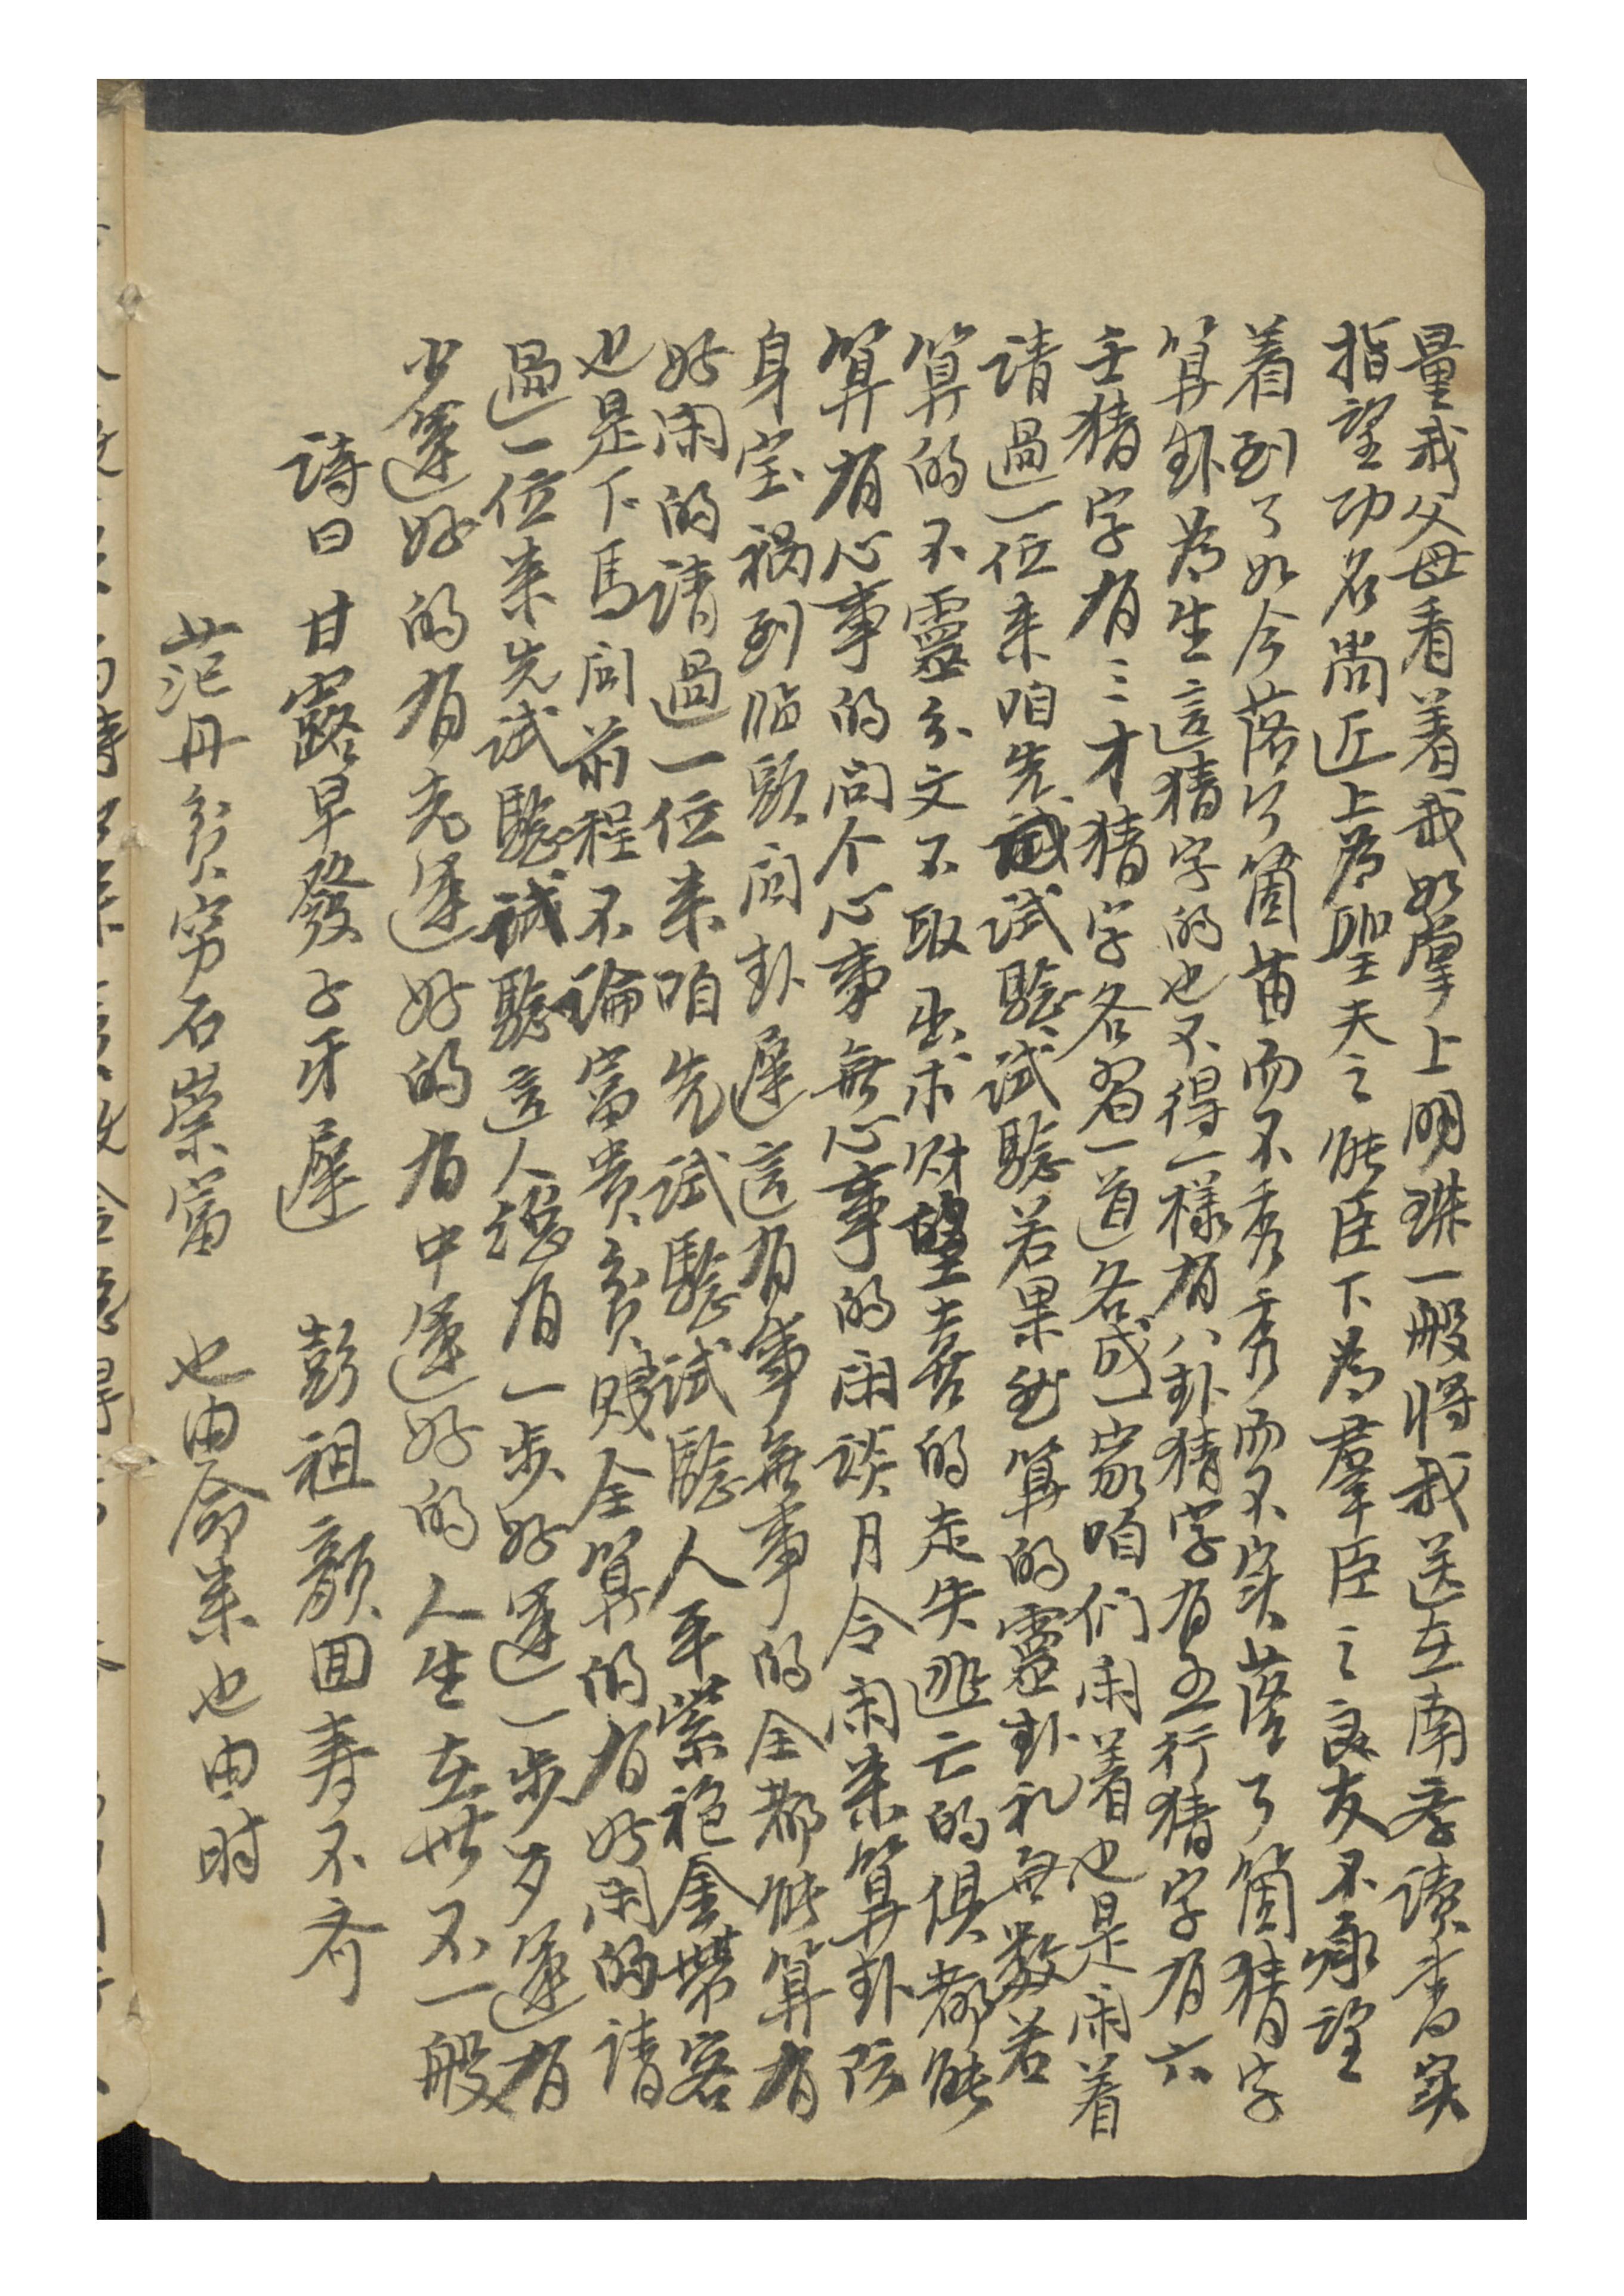 量我父母看着我如掌上明珠一般将我送在南学读书实
指望功名尚近上为聖夫之能臣下为羣臣之良友不承望
着到了如今落了箇苗而不秀秀而不实落了箇猜字
算卦为生這猜字的也不得一樣有八卦猜字有五行猜字有六
壬猜字有三才猜字各習一道各成一家咱们闲着也是闲着
请過一位来咱先試驗試驗若果然算的靈卦礼無数若
算的不靈分文不取出求财望喜的走失逃亡的俱都能
算有心事的问个心事無心事的闲谈月令闲来算卦防
身宝禍到临頭问卦遲這有事無事的全都能算有
好闲的请過一位来咱先試驗試驗人年紫袍金带客
也是下馬问前程不論富贵貧賤全算的有好闲的请
過一位来先試驗試驗這人謡有一步好運一步歹運有
少運好的有老運好的有中運好的人生在世不一般
詩曰 甘露早發子牙遲 彭祖顏回寿不齐
范丹貧穷石崇富 也由命来也由时